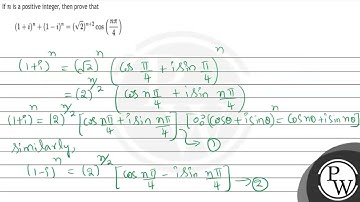 If n is a positive integer, then prove that
(1 + i)^n + (1 − i)^n = (√2)^{n+2} cos(nπ/4)
(1+i)^n = (√2)^n (cos π/4 + i sin π/4)^n
= (2)^{n/2} (cos nπ/4 + i sin nπ/4)
(1+i)^n = (2)^{n/2} [cos nπ/4 + i sin nπ/4] → ① [∵ (cosθ + i sinθ)^n = cos nθ + i sin nθ]
similarly,
(1-i)^n = (2)^{n/2} [cos nπ/4 − i sin nπ/4] → ②
PW